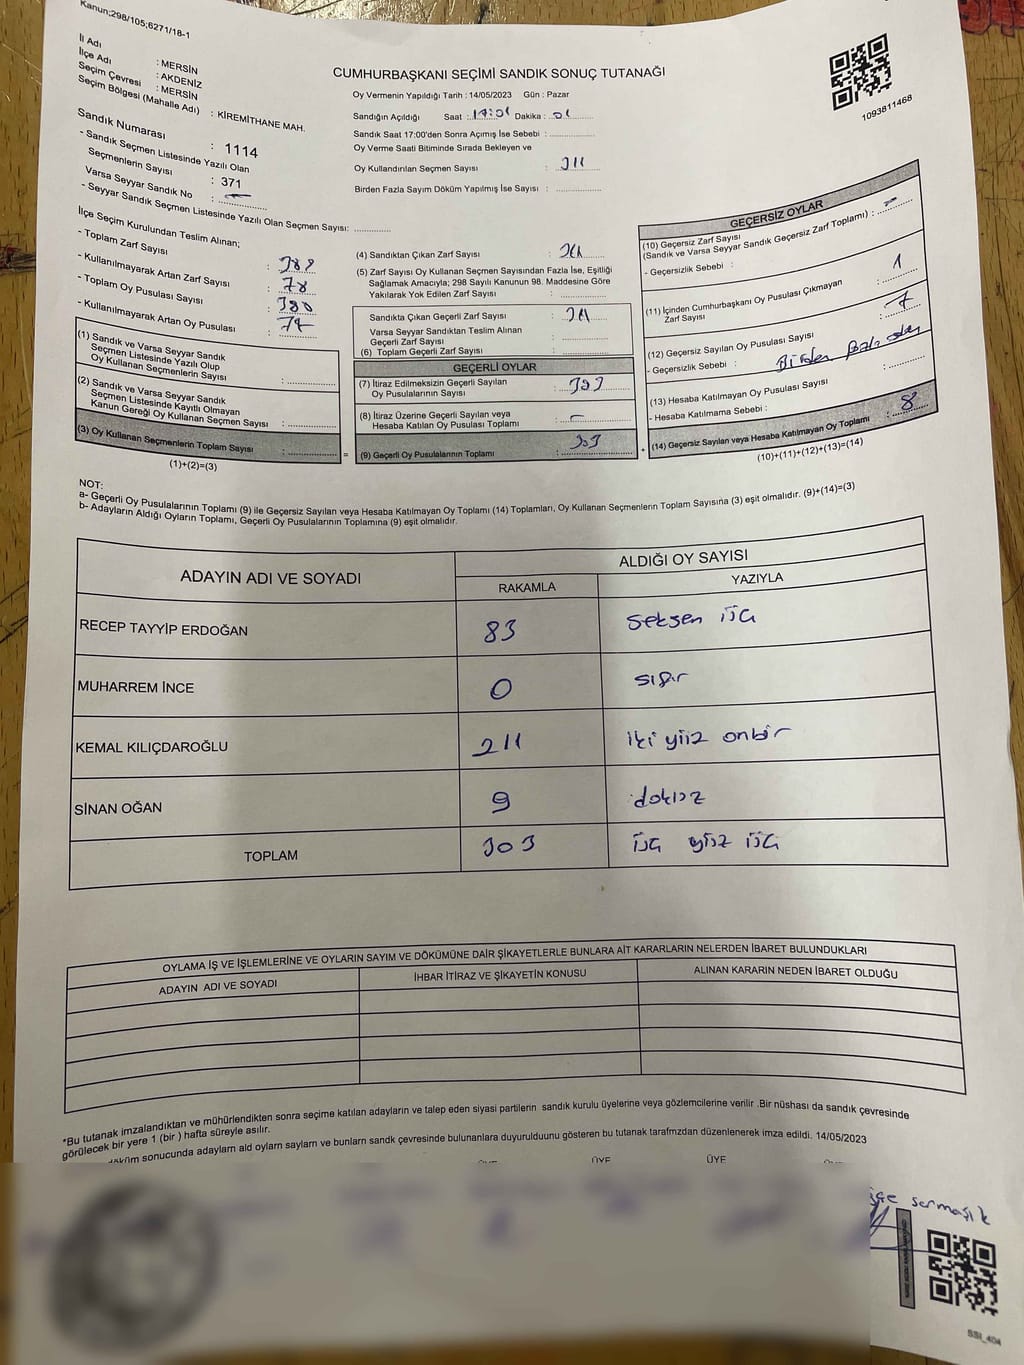 Kanun;298/105;6271/18-1
İl Adı : MERSİN
İlçe Adı : AKDENİZ
Seçim Çevresi : MERSİN
Seçim Bölgesi (Mahalle Adı) : KİREMİTHANE MAH.
CUMHURBAŞKANI SEÇİMİ SANDIK SONUÇ TUTANAĞI
Oy Vermenin Yapıldığı Tarih : 14/05/2023 Gün : Pazar
Sandığın Açıldığı Saat : 17:01 Dakika : 01
Sandık Saat 17:00'den Sonra Açımış İse Sebebi :
Oy Verme Saati Bitiminde Sırada Bekleyen ve
Oy Kullandırılan Seçmen Sayısı : 311
Birden Fazla Sayım Döküm Yapılmış İse Sayısı :
1093811468
Sandık Numarası : 1114
- Sandık Seçmen Listesinde Yazılı Olan
Seçmenlerin Sayısı : 371
Varsa Seyyar Sandık No : —
- Seyyar Sandık Seçmen Listesinde Yazılı Olan Seçmen Sayısı:
İlçe Seçim Kurulundan Teslim Alınan;
- Toplam Zarf Sayısı :
- Kullanılmayarak Artan Zarf Sayısı : 78
- Toplam Oy Pusulası Sayısı : 380
- Kullanılmayarak Artan Oy Pusulası :
(1) Sandık ve Varsa Seyyar Sandık
Seçmen Listesinde Yazılı Olup
Oy Kullanan Seçmenlerin Sayısı :
(2) Sandık ve Varsa Seyyar Sandık
Seçmen Listesinde Kayıtlı Olmayan
Kanun Gereği Oy Kullanan Seçmen Sayısı :
(3) Oy Kullanan Seçmenlerin Toplam Sayısı :
(1)+(2)=(3)
(4) Sandıktan Çıkan Zarf Sayısı : 311
(5) Zarf Sayısı Oy Kullanan Seçmen Sayısından Fazla İse, Eşitliği
Sağlamak Amacıyla; 298 Sayılı Kanunun 98. Maddesine Göre
Yakılarak Yok Edilen Zarf Sayısı :
Sandıkta Çıkan Geçerli Zarf Sayısı : 311
Varsa Seyyar Sandıktan Teslim Alınan
Geçerli Zarf Sayısı :
(6) Toplam Geçerli Zarf Sayısı :
GEÇERLİ OYLAR
(7) İtiraz Edilmeksizin Geçerli Sayılan
Oy Pusulasının Sayısı : 303
(8) İtiraz Üzerine Geçerli Sayılan veya
Hesaba Katılan Oy Pusulası Toplamı : —
(9) Geçerli Oy Pusulalarının Toplamı : 303
GEÇERSİZ OYLAR
(10) Geçersiz Zarf Sayısı
(Sandık ve Varsa Seyyar Sandık Geçersiz Zarf Toplamı) : —
- Geçersizlik Sebebi :
(11) İçinden Cumhurbaşkanı Oy Pusulası Çıkmayan
Zarf Sayısı : 1
(12) Geçersiz Sayılan Oy Pusulası Sayısı : 7
- Geçersizlik Sebebi : Birden fazla oy
(13) Hesaba Katılmayan Oy Pusulası Sayısı :
- Hesaba Katılmama Sebebi :
(14) Geçersiz Sayılan veya Hesaba Katılmayan Oy Toplamı : 8
(10)+(11)+(12)+(13)=(14)
NOT:
a- Geçerli Oy Pusulalarının Toplamı (9) ile Geçersiz Sayılan veya Hesaba Katılmayan Oy Toplamı (14) Toplamları, Oy Kullanan Seçmenlerın Toplam Sayısına (3) eşit olmalıdır. (9)+(14)=(3)
b- Adayların Aldığı Oyların Toplamı, Geçerli Oy Pusulalarının Toplamına (9) eşit olmalıdır.
ADAYIN ADI VE SOYADI ALDIĞI OY SAYISI
RAKAMLA YAZIYLA
RECEP TAYYİP ERDOĞAN 83 seksen üç
MUHARREM İNCE 0 sıfır
KEMAL KILIÇDAROĞLU 211 iki yüz onbir
SİNAN OĞAN 9 dokuz
TOPLAM 303 üç yüz üç
OYLAMA İŞ VE İŞLEMLERİNE VE OYLARIN SAYIM VE DÖKÜMÜNE DAİR ŞİKAYETLERLE BUNLARA AİT KARARLARIN NELERDEN İBARET BULUNDUKLARI
ADAYIN ADI VE SOYADI İHBAR İTİRAZ VE ŞİKAYETİN KONUSU ALINAN KARARIN NEDEN İBARET OLDUĞU
*Bu tutanak imzalandıktan ve mühürlendikten sonra seçime katılan adayların ve talep eden siyasi partilerin sandık kurulu üyelerine veya gözlemcilerine verilir .Bir nüshası da sandık çevresinde
görülecek bir yere 1 (bir ) hafta süreyle asılır.
döküm sonucunda adayların ald oyların sayların ve bunların sandk çevresinde bulunanlara duyurulduunu gösteren bu tutanak tarafmzdan düzenlenerek imza edildi. 14/05/2023
ÜYE ÜYE
sarmaşık
SSI_404